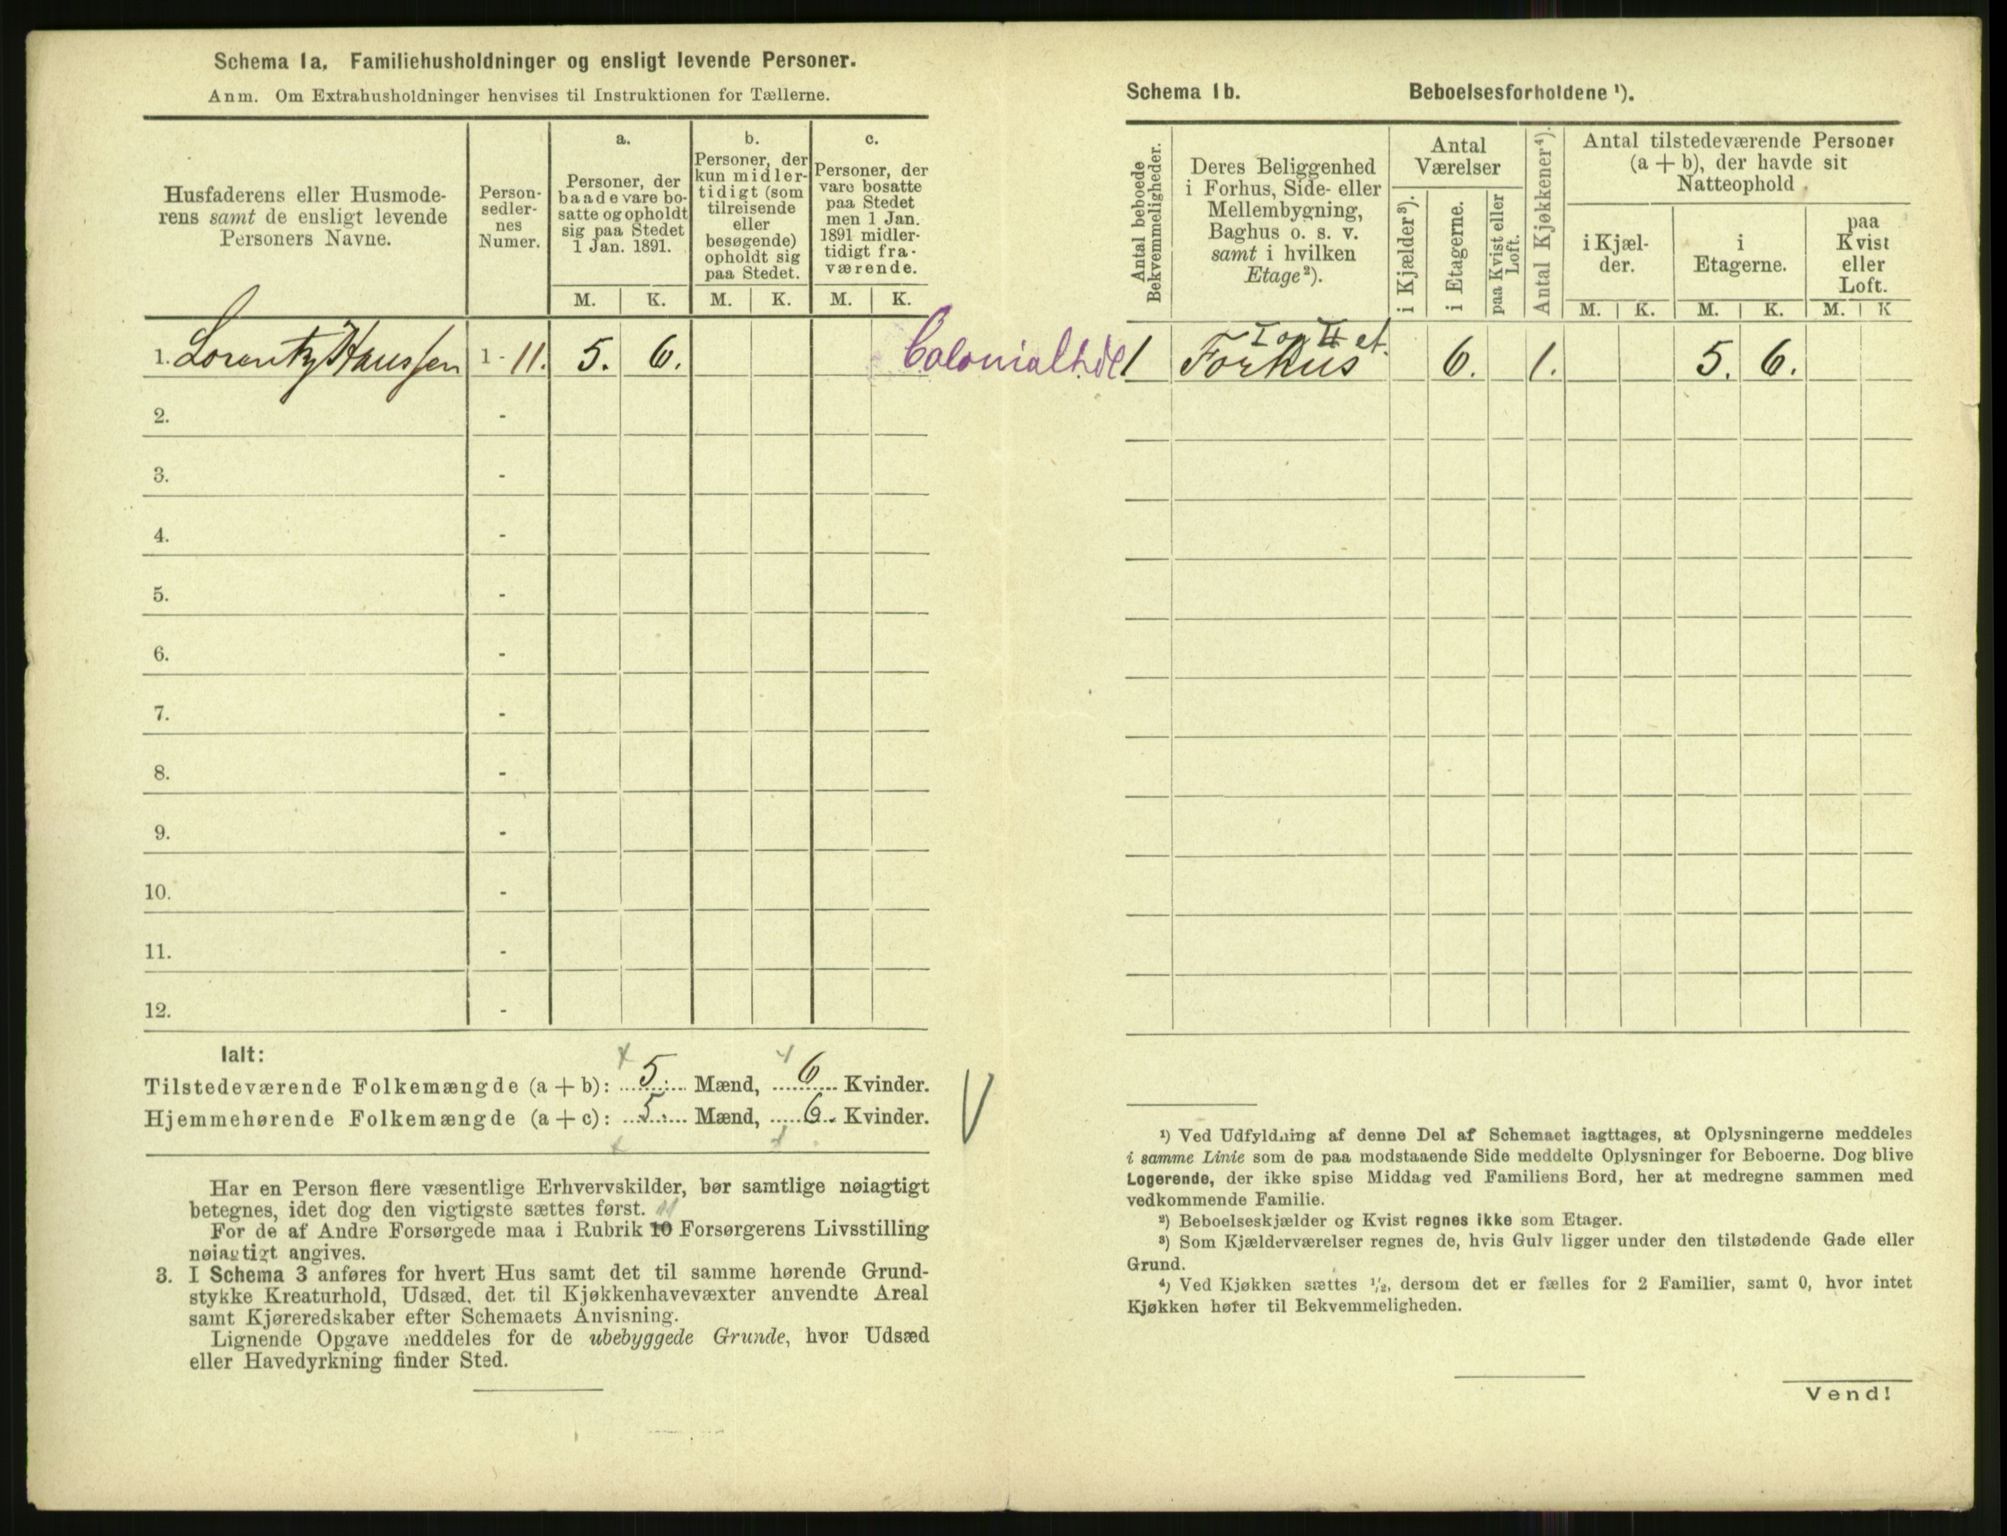 Schema 1a. Familiehusholdninger og ensligt levende Personer.
Anm. Om Extrahusholdninger henvises til Instruktionen for Tællerne.
Husfaderens eller Husmode-
rens samt de ensligt levende
Personers Navne.
Person-
sedler-
nes
Numer.
a.
Personer, der
baade vare bo-
satte og opholdt
sig paa Stedet
1 Jan. 1891.
b.
Personer, der
kun midler-
tidigt (som
tilreisende
eller
besøgende)
opholdt sig
paa Stedet.
c.
Personer, der
vare bosatte
paa Stedet
men 1 Jan.
1891 midler-
tidigt fra-
værende.
M. K. M. K. M. K.
1. Lorentz Hanssen 1 - 11. 5. 6.
2. -
3. -
4. -
5. -
6. -
7. -
8. -
9. -
10. -
11. -
12. -
Ialt:
Tilstedeværende Folkemængde (a + b): 5 Mænd, 6 Kvinder.
Hjemmehørende Folkemængde (a + c): 5 Mænd, 6 Kvinder.
Har en Person flere væsentlige Erhvervskilder, bør samtlige nøiagtigt
betegnes, idet dog den vigtigste sættes først. 11
For de af Andre Forsørgede maa i Rubrik 10 Forsørgerens Livsstilling
nøiagtigt angives.
3. I Schema 3 anføres for hvert Hus samt det til samme hørende Grund-
stykke Kreaturhold, Udsæd, det til Kjøkkenhavevæxter anvendte Areal
samt Kjøreredskaber efter Schemaets Anvisning.
Lignende Opgave meddeles for de ubebyggede Grunde, hvor Udsæd
eller Havedyrkning finder Sted.
Schema 1b. Beboelsesforholdene ¹).
Antal beboede
Bekvemmeligheder.
Deres Beliggenhed
i Forhus, Side- eller
Mellembygning,
Baghus o. s. v.
samt i hvilken
Etage²).
Antal
Værelser
i Kjælder³).
i Etagerne.
paa Kvist eller
Loft.
Antal Kjøkkener⁴).
Antal tilstedeværende Personer
(a + b), der havde sit
Natteophold
i Kjæl-
der.
i
Etagerne.
paa
Kvist
eller
Loft.
M. K. M. K. M. K
I og II et.
Colonialhdl 1 Forhus 6. 1. 5. 6.
¹) Ved Udfyldning af denne Del af Schemaet iagttages, at Oplysningerne meddeles
i samme Linie som de paa modstaaende Side meddelte Oplysninger for Beboerne. Dog blive
Logerende, der ikke spise Middag ved Familiens Bord, her at medregne sammen med
vedkommende Familie.
²) Beboelseskjælder og Kvist regnes ikke som Etager.
³) Som Kjælderværelser regnes de, hvis Gulv ligger under den tilstødende Gade eller
Grund.
⁴) Ved Kjøkken sættes ½, dersom det er fælles for 2 Familier, samt 0, hvor intet
Kjøkken hører til Bekvemmeligheden.
Vend!